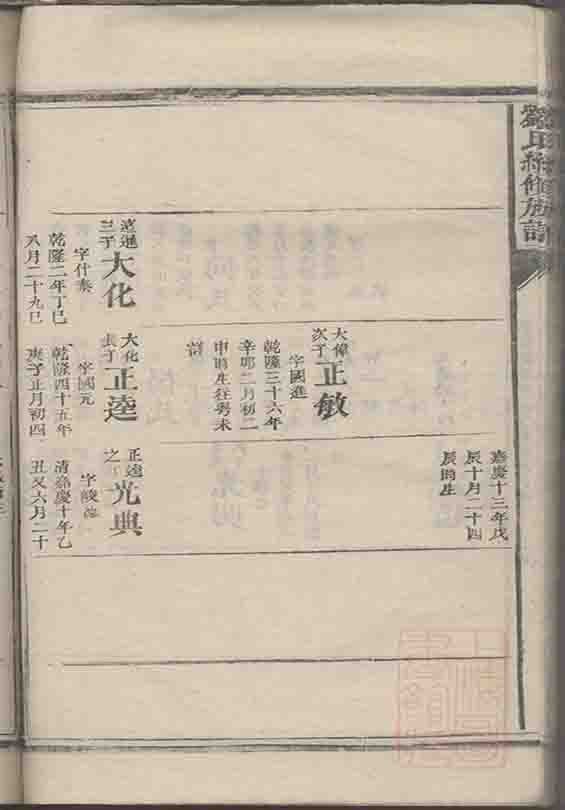 劉氏 修族譜
嘉慶十三年戊
辰十月二十四
辰時生
大偉
次子
正敏
字國進
乾隆三十六年
辛卯二月初二
申時生往粤未
三子
大化
字什奏
乾隆二年丁巳
八月二十九巳
大化
長子
正逵
字國元
乾隆四十五年
庚子正月初四
正逵
之
光典
字
清嘉慶十年乙
丑又六月二十